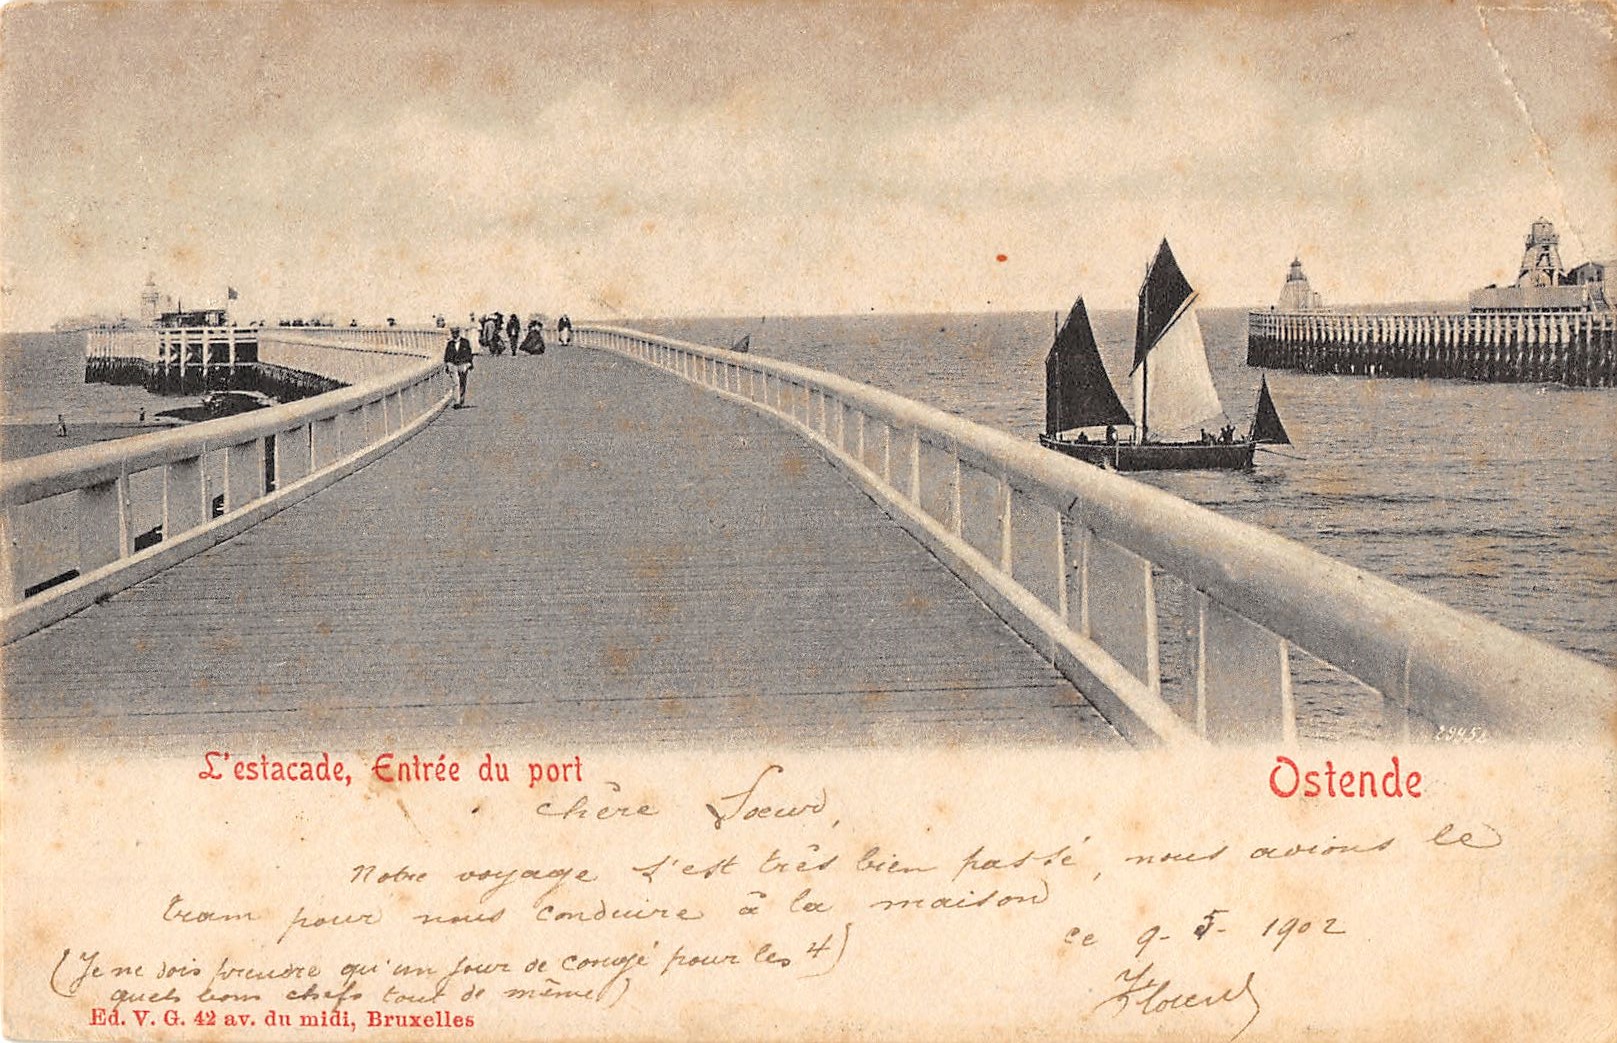 29452
L'estacade, Entrée du port
Ostende
chère Sœur,
Notre voyage s'est très bien passé, nous avions le
tram pour nous conduire à la maison
ce 9-5-1902
(Je ne dois prendre qu'un jour de congé pour les 4)
quels bons chefs tout de même)
Ed. V. G. 42 av. du midi, Bruxelles